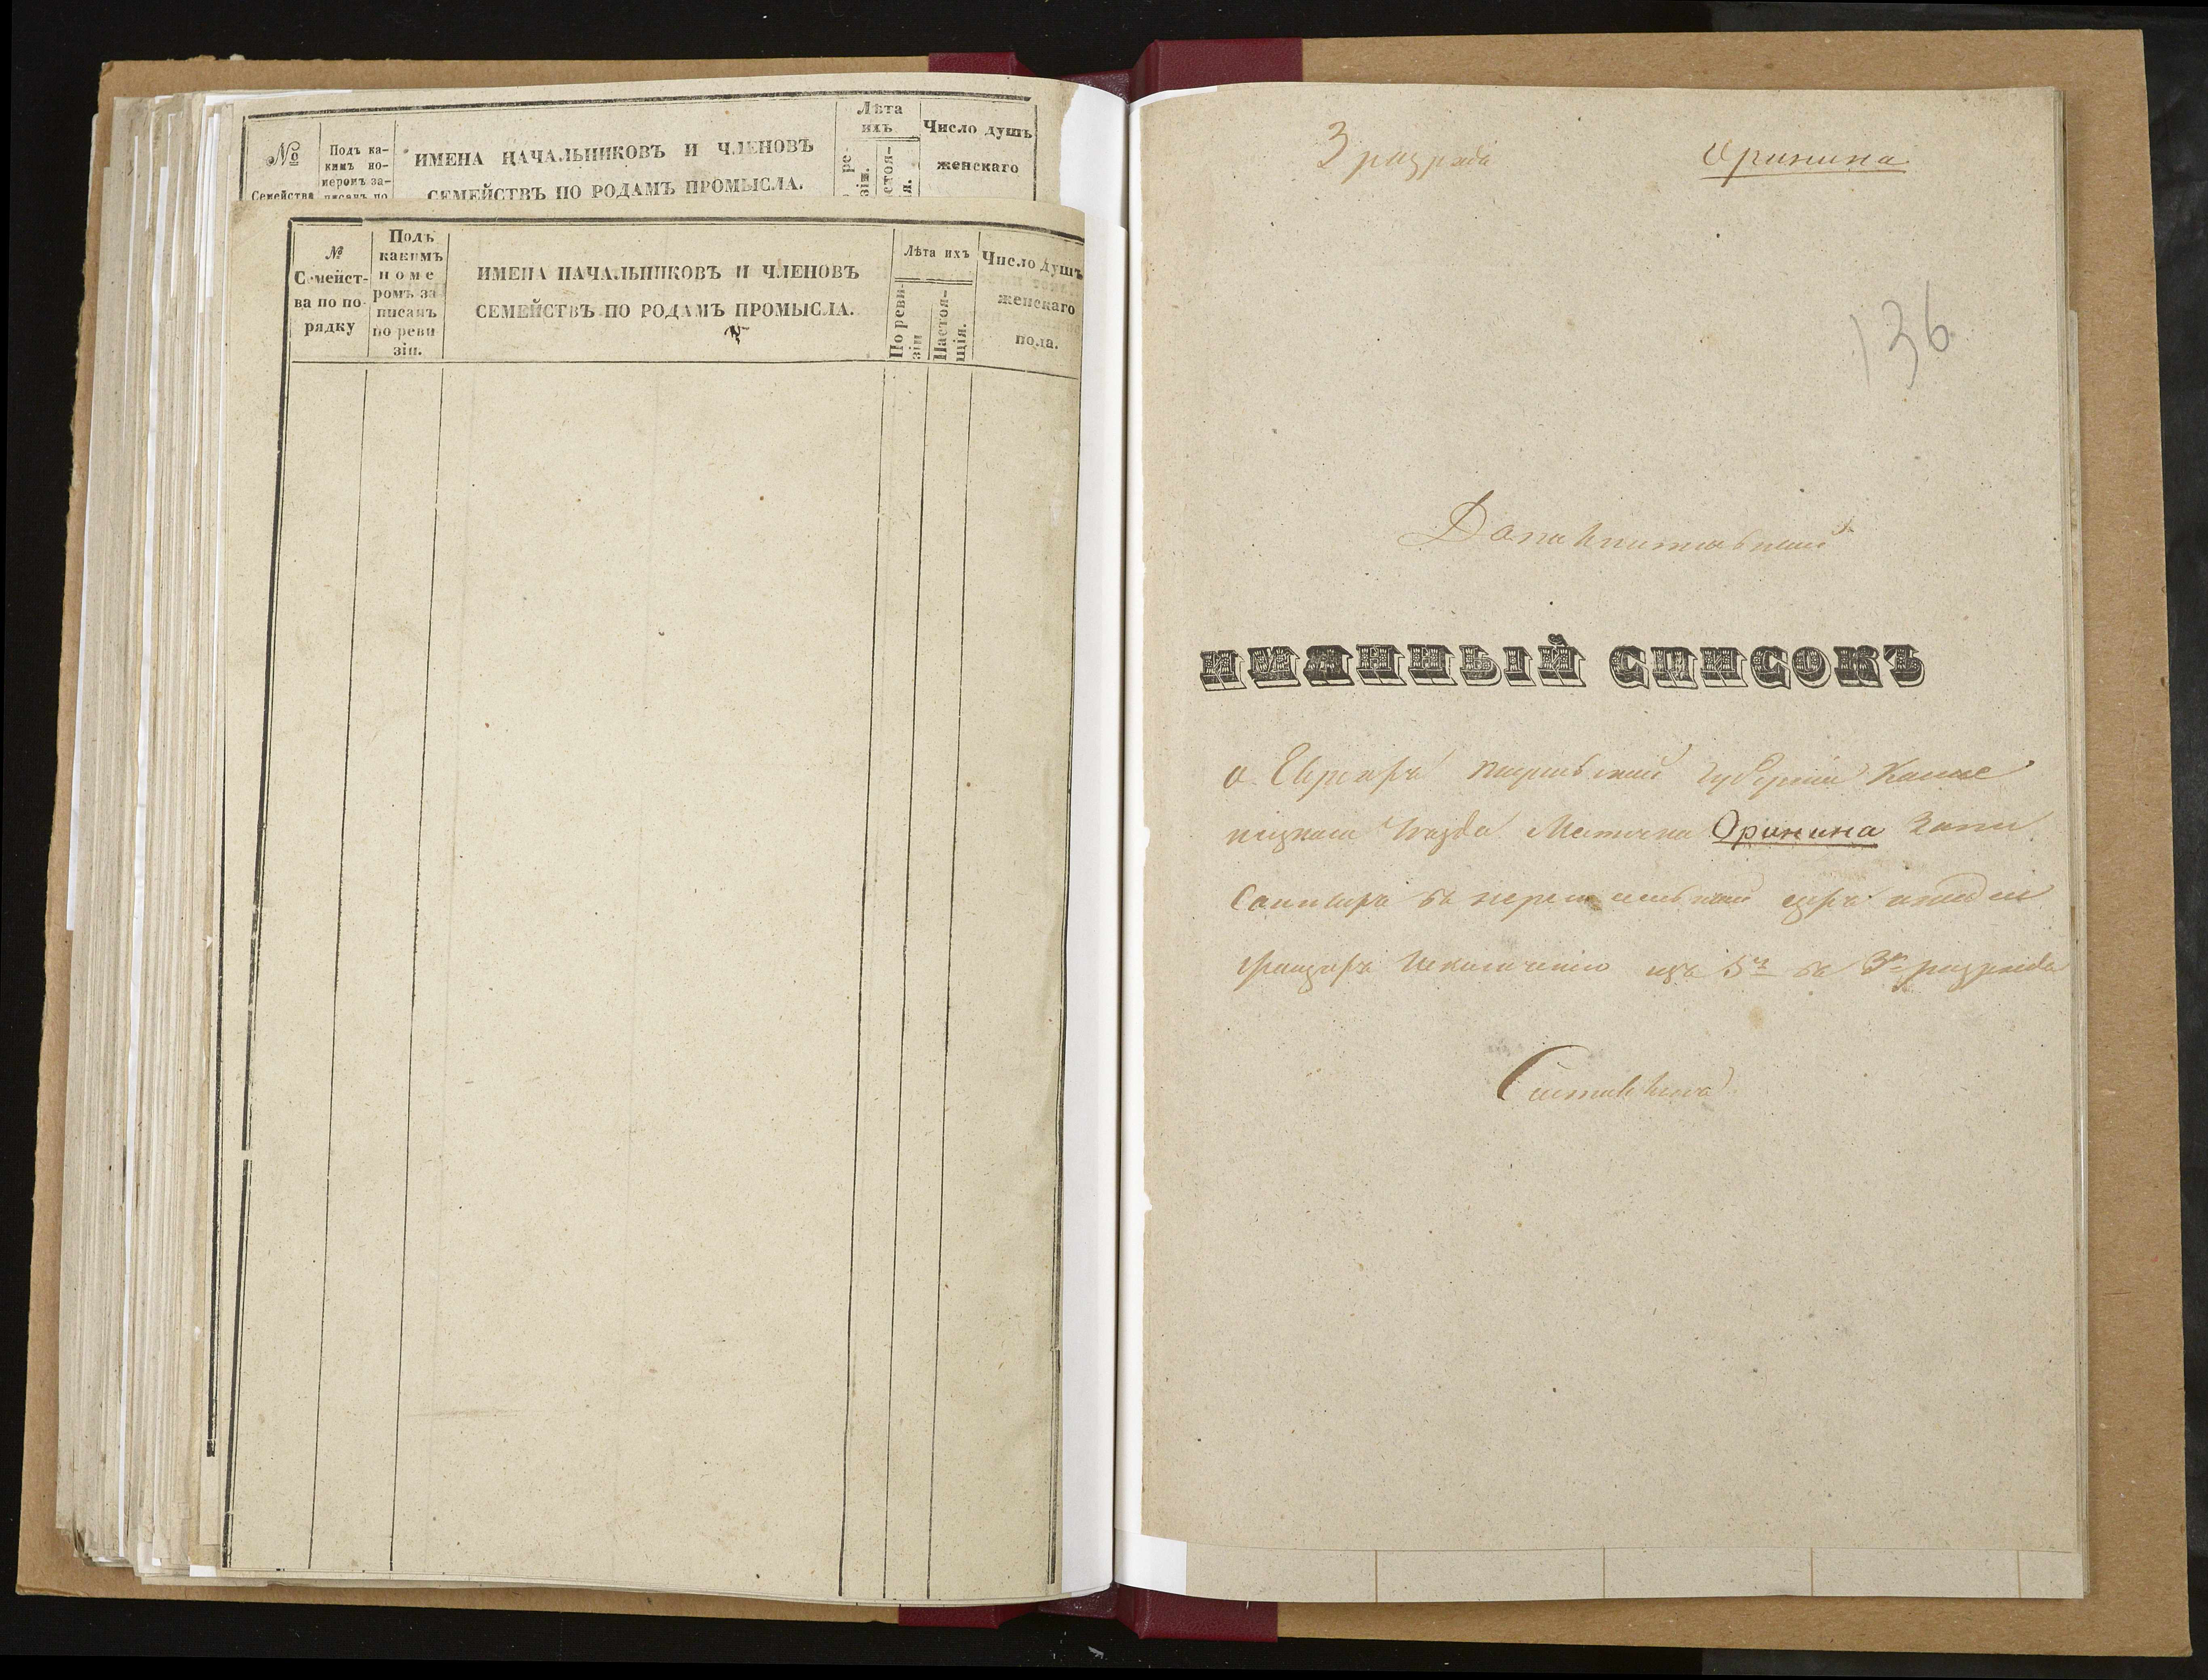 №
Семейства
Подъ ка-
кимъ но-
меромъ за-
писанъ по
ИМЕНА НАЧАЛЬНИКОВЪ И ЧЛЕНОВЪ
СЕМЕЙСТВЪ ПО РОДАМЪ ПРОМЫСЛА.
Лѣта
ихъ
ре-
зіи.
стоя-
я.
Число душъ
женскаго
№
Семейст-
ва по по-
рядку
Подъ
какимъ
номе
ромъ за
писанъ
по реви
зіи.
ИМЕНА НАЧАЛЬНИКОВЪ И ЧЛЕНОВЪ
СЕМЕЙСТВЪ ПО РОДАМЪ ПРОМЫСЛА.
Лѣта ихъ
По реви-
зіи
Настоя-
щія.
Число душъ
женскаго
пола.
3 разряда
Оринина
136
Дополнительный
ИМЯННЫЙ СПИСОКЪ
о Евреяхъ Подольской Губерніи Камe
нецкаго Уѣзда Мѣстечка Оринина Запи
савшихся въ
изъ 5го въ 3й разрядъ